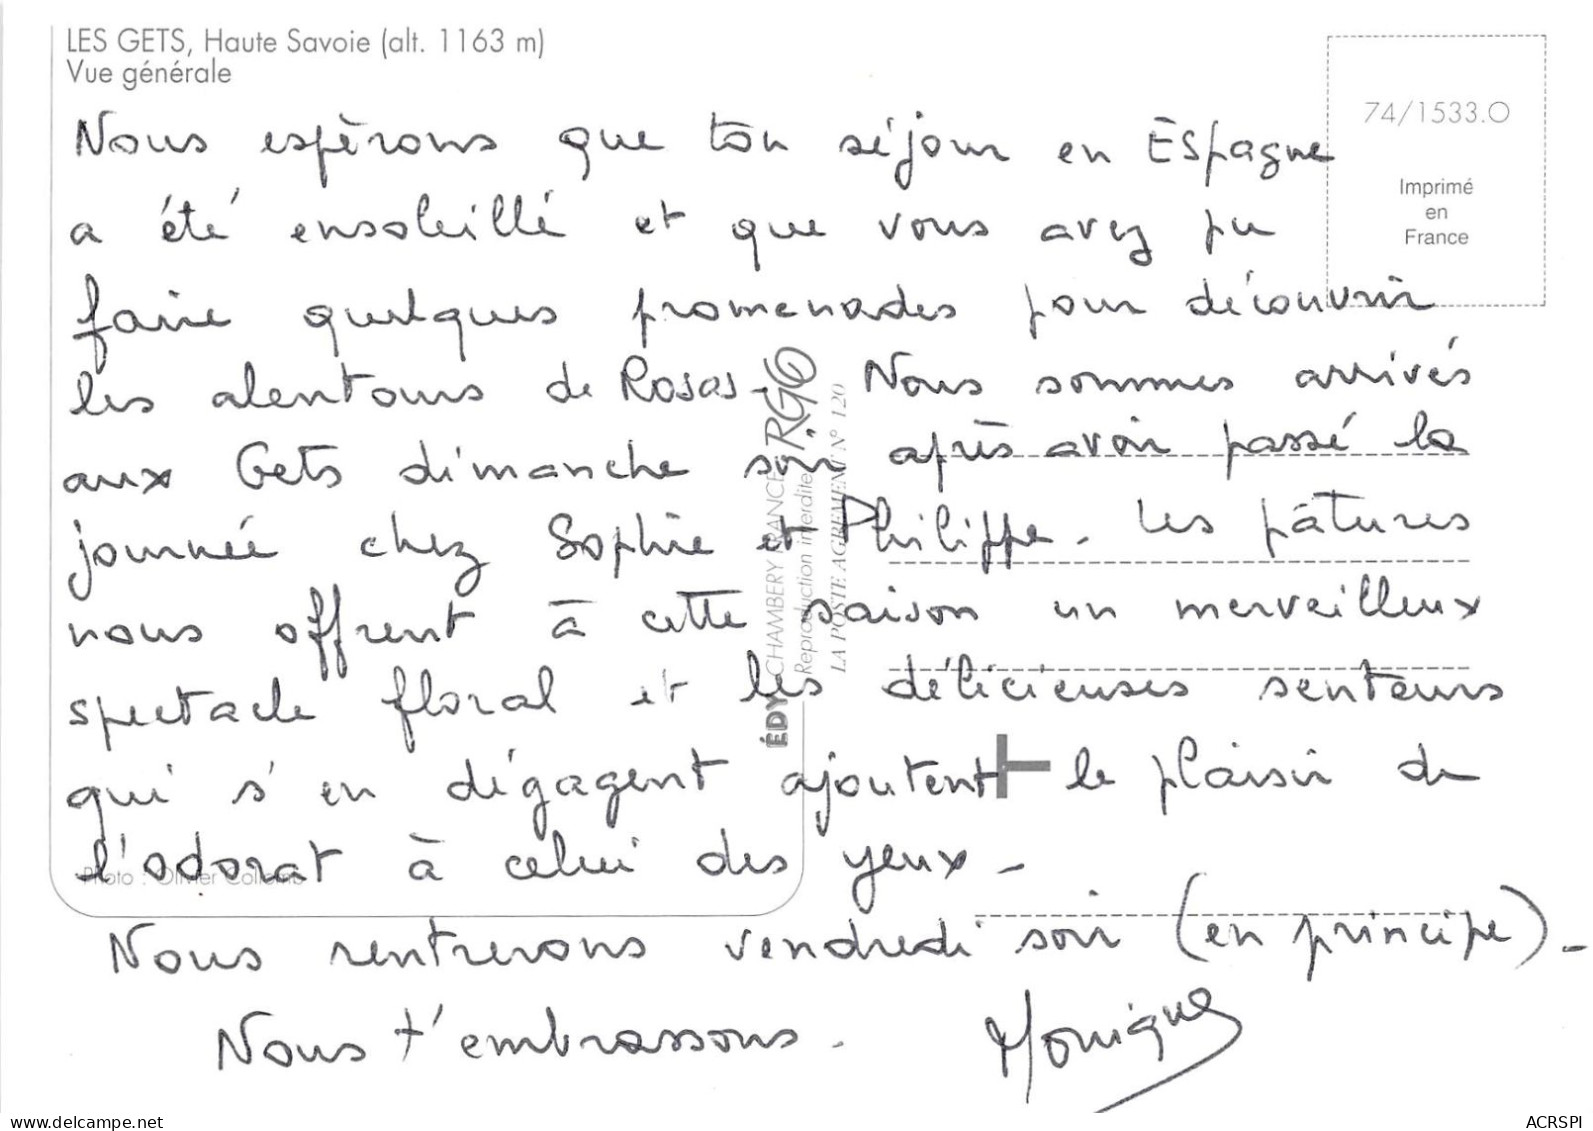 LES GETS, Haute Savoie (alt. 1163 m)
Vue générale
74/1533.O
Imprimé
en
France
Nous espèrons que ton séjour en Espagne
a été ensoleillé et que vous avez pu
faire quelques promenades pour découvrir
les alentours de Rosas- Nous sommes arrivés
aux Gets dimanche soir après avoir passé la
journée chez Sophie et Philippe. Les pâtures
nous offrent à cette saison un merveilleux
spectacle floral et les délicieuses senteurs
qui s'en dégagent ajoutent le plaisir de
l'odorat à celui des yeux-
Nous rentrerons vendredi soir (en principe)-
Nous t'embrassons. Monique
ÉDY CHAMBERY FRANCE
Reproduction interdite
LA POSTE AGREMENT N° 120
Photo : Olivier
delcampe.net
ACRSPI